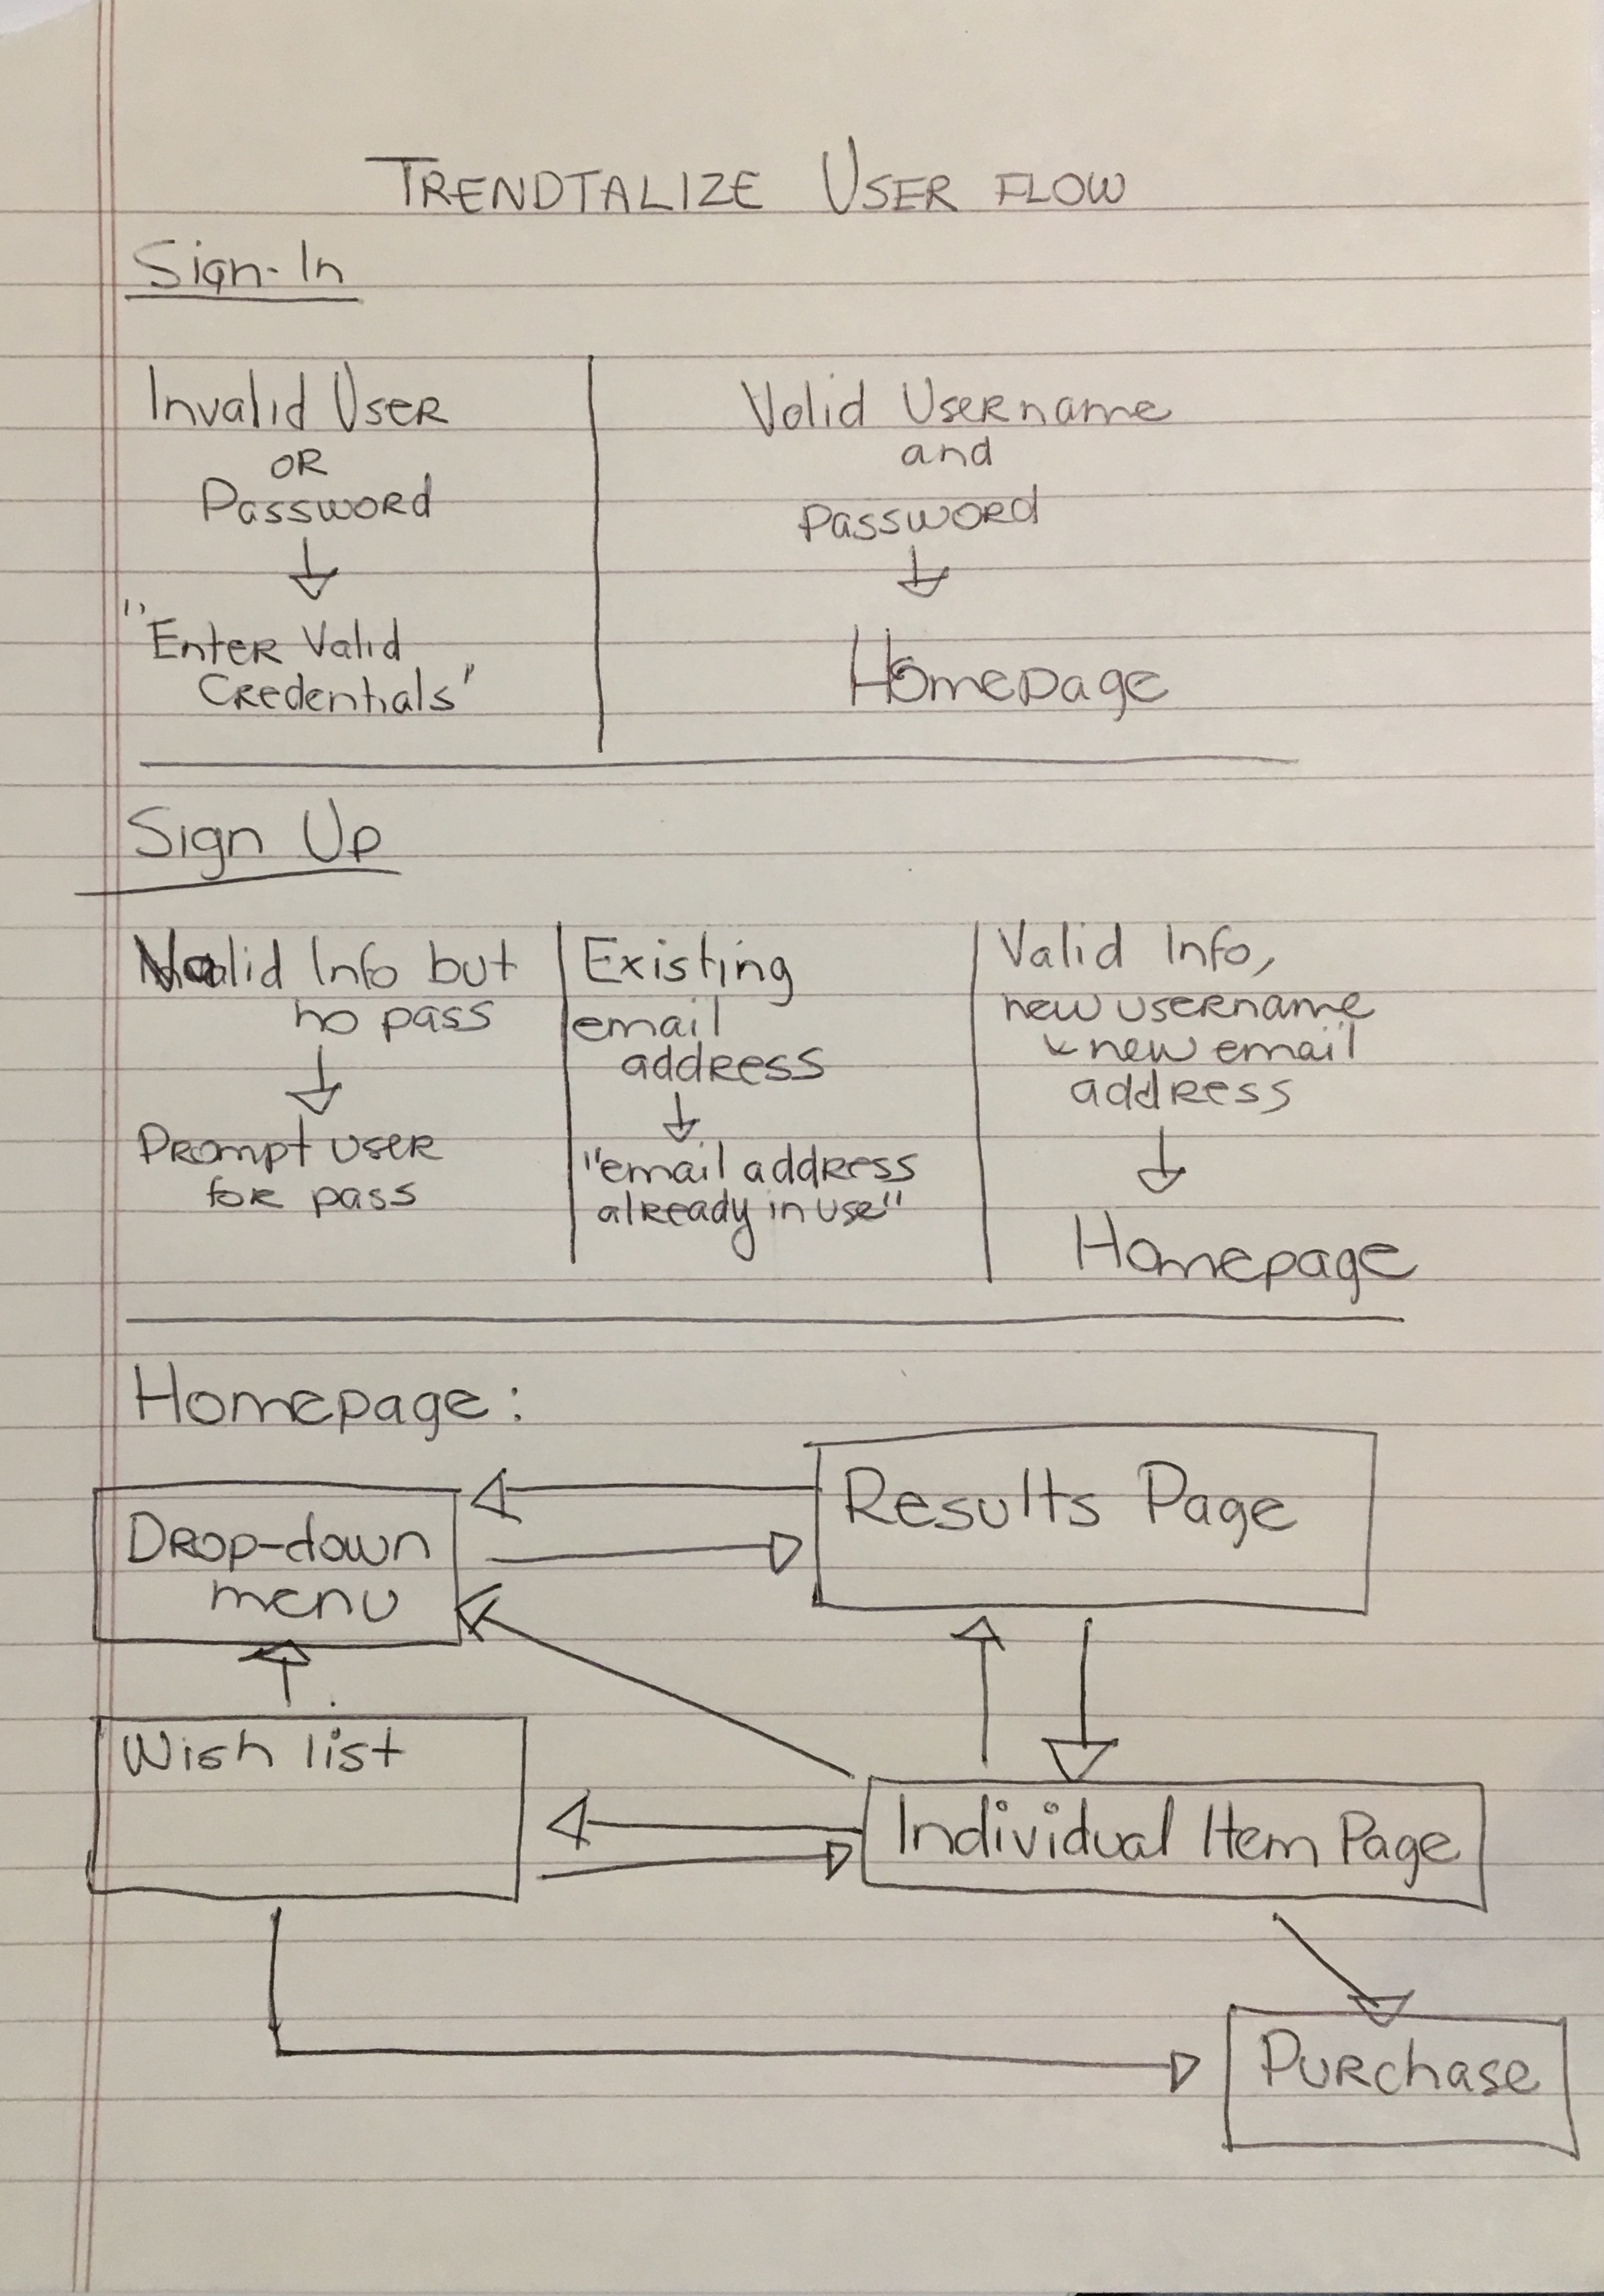 TRENDTALIZE USER FLOW
Sign-In
Invalid User
OR
Password
"Enter Valid
Credentials"
Valid Username
and
Password
Homepage
Sign Up
Valid Info but
no pass
Prompt user
for pass
Existing
email
address
"email address
already in use"
Valid Info,
new username
& new email
address
Homepage
Homepage:
Drop-down
menu
Results Page
Wish list
Individual Item Page
Purchase